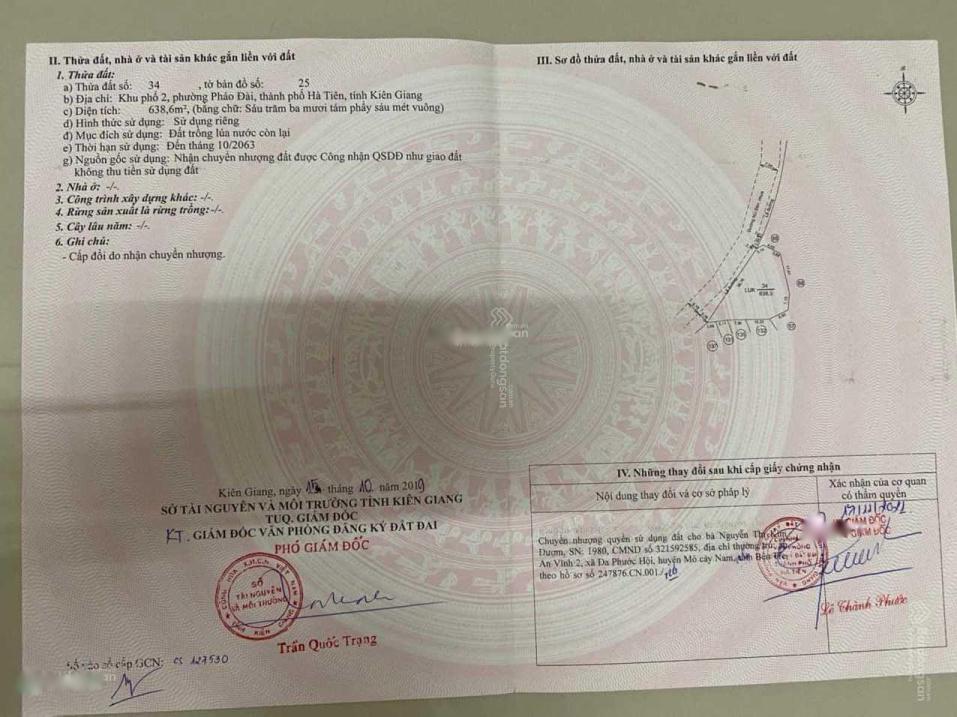 II. Thửa đất, nhà ở và tài sản khác gắn liền với đất
1. Thửa đất:
a) Thửa đất số: 34 , tờ bản đồ số: 25
b) Địa chỉ: Khu phố 2, phường Pháo Đài, thành phố Hà Tiên, tỉnh Kiên Giang
c) Diện tích: 638,6m², (bằng chữ: Sáu trăm ba mươi tám phẩy sáu mét vuông)
d) Hình thức sử dụng: Sử dụng riêng
đ) Mục đích sử dụng: Đất trồng lúa nước còn lại
e) Thời hạn sử dụng: Đến tháng 10/2063
g) Nguồn gốc sử dụng: Nhận chuyển nhượng đất được Công nhận QSDĐ như giao đất
không thu tiền sử dụng đất
2. Nhà ở: -/-
3. Công trình xây dựng khác: -/-.
4. Rừng sản xuất là rừng trồng:-/-.
5. Cây lâu năm: -/-
6. Ghi chú:
- Cấp đổi do nhận chuyển nhượng.
Kiên Giang, ngày 15 tháng 10 năm 2019
SỞ TÀI NGUYÊN VÀ MÔI TRƯỜNG TỈNH KIÊN GIANG
TUQ. GIÁM ĐỐC
KT. GIÁM ĐỐC VĂN PHÒNG ĐĂNG KÝ ĐẤT ĐAI
PHÓ GIÁM ĐỐC
SỞ
TÀI NGUYÊN
VÀ MÔI TRƯỜNG
Trần Quốc Trạng
Số vào sổ cấp GCN: CS 127530
III. Sơ đồ thửa đất, nhà ở và tài sản khác gắn liền với đất
LUK 34
IV. Những thay đổi sau khi cấp giấy chứng nhận
Nội dung thay đổi và cơ sở pháp lý
Xác nhận của cơ quan
có thẩm quyền
Chuyển nhượng quyền sử dụng đất cho bà Nguyễn Thị
Dượm, SN: 1980, CMND số 321592585, địa chỉ thường trú
An Vĩnh 2, xã Đa Phước Hội, huyện Mỏ cày Nam, tỉnh Bến
theo hồ sơ số 247876.CN.001./
GIÁM ĐỐC
Lê Thành Phước
batdongsan